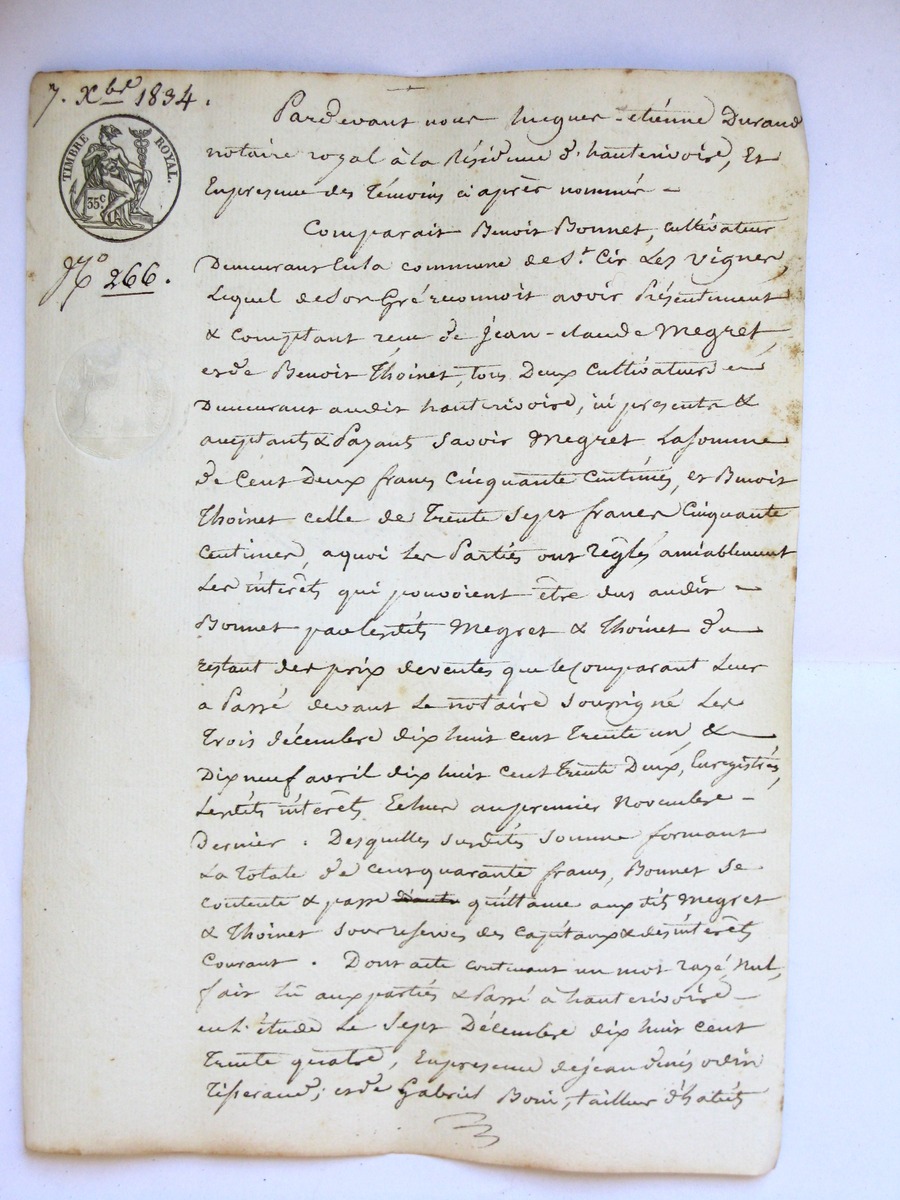 7. Xbre 1834.
TIMBRE ROYAL.
35c.
No 266.
Pardevant nous hugues-etiénne Durand
notaire royal à la Résidence d'hauterivoire, Et
En presence des Témoins ci après nommés -
Comparait Benoit Bonnet, cultivateur
Demeurant En la commune de St. Cir Les Vignes,
Lequel de son Gré reconnoit avoir Présentement
& comptant reçu de Jean-claude Megret,
et de Benoit Thoinet, tous Deux cultivateurs
Demeurant audit hauterivoire, ici presents &
acceptants & Payants Savoir Megret La somme
de Cent Deux francs Cinquante Centimes, et Benoit
Thoinet celle de Trente Sept francs Cinquante
Centimes, a quoi Les Partiés ont Réglés amiablement
Les intérêts qui pouvoient être dus audit -
Bonnet par lesdits Megret & Thoinet du
restant des prix de ventes que le comparant Leur
a Passé devant Le notaire soussigné Les
Trois décembre dix huit cent trente un, &
Dix neuf avril dix huit cent trente Deux, Enregistrés,
Lesdits intérêts Echus au premier Novembre -
Dernier. Desquelles susdites somme formant
La totale de cent quarante francs, Bonnet se
contente & passe quittance auxdits Megret
& Thoinet sous reserves des capitaux & des intérêts
Courant. Dont acte contenant un mot rayé Nul,
fait Lu aux partiés & Passé à hauterivoire -
en L'étude Le Sept Décembre dix huit cent
trente quatre, En presence de jean denis odin
Tisserand; et de Gabriel tailleur d'habits